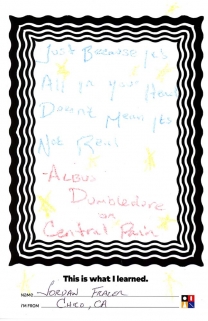 Just Because its
All in your Head
Doesnt Mean its
Not Real
-Albus
Dumbledore
on
Central Pain
This is what I learned.
NAME Jordan Frazer
I'M FROM Chico, CA